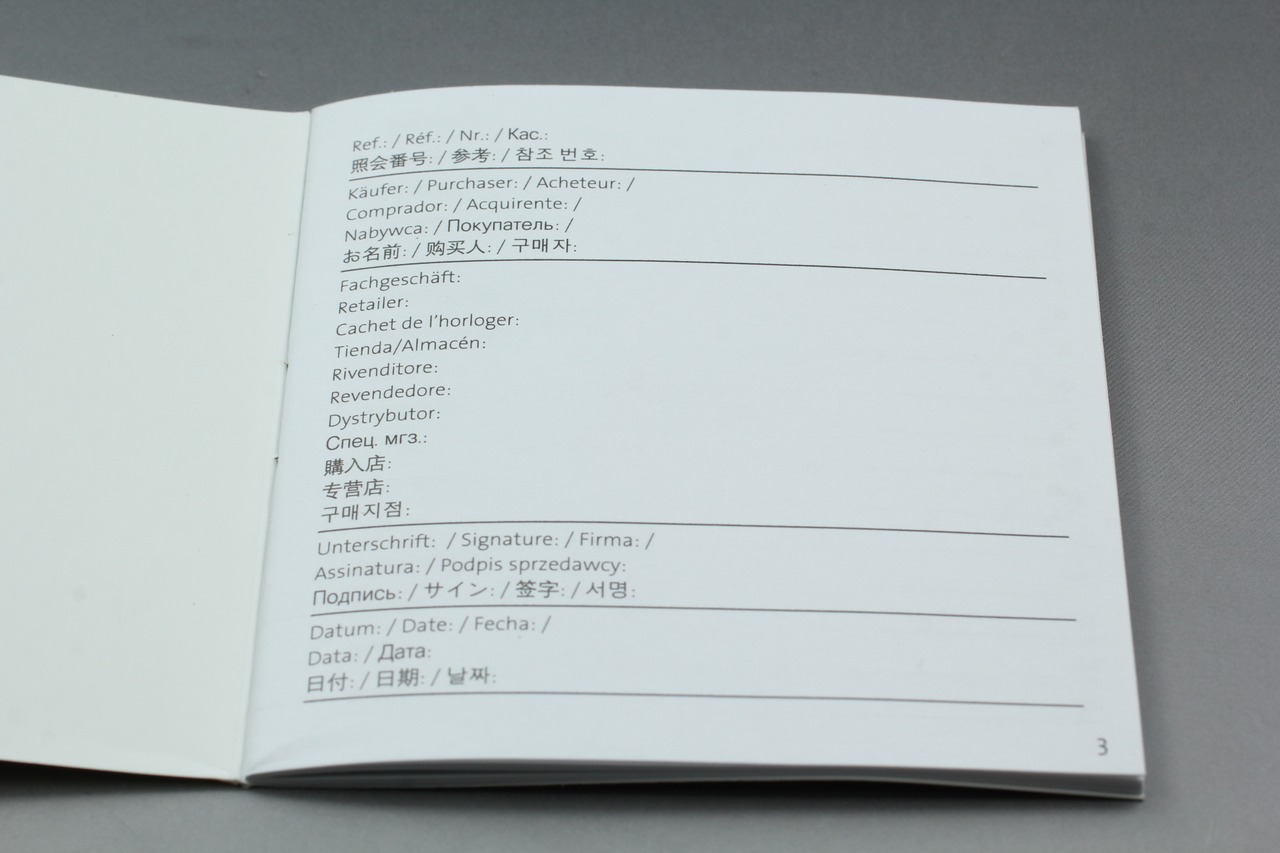 Ref.: / Réf.: / Nr.: / Kac.:
照会番号: / 参考: / 참조 번호:
Käufer: / Purchaser: / Acheteur: /
Comprador: / Acquirente: /
Nabywca: / Покупатель: /
お名前: / 购买人: / 구매자:
Fachgeschäft:
Retailer:
Cachet de l'horloger:
Tienda/Almacén:
Rivenditore:
Revendedore:
Dystrybutor:
Спец. мгз.:
購入店:
专营店:
구매지점:
Unterschrift: / Signature: / Firma: /
Assinatura: / Podpis sprzedawcy:
Подпись: / サイン: / 签字: / 서명:
Datum: / Date: / Fecha: /
Data: / Дата:
日付: / 日期: / 날짜:
3